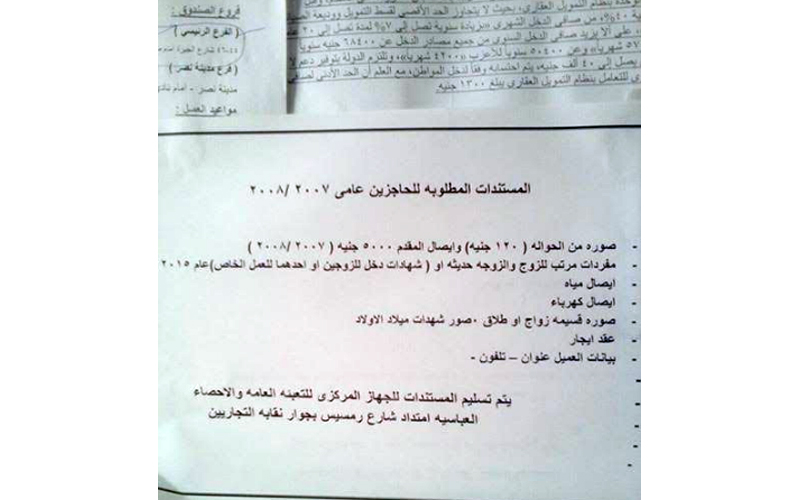 فروع الصندوق :
( الفرع الرئيسي )
٤٤-٤٦ شارع الجيزة
( فرع مدينة نصر )
مدينة نصر - أمام نادي
مواعيد العمل :
بنظام التمويل العقاري، بحيث لا يتجاوز الحد الأقصى لقسط التمويل ووديعة
٤٠%، من صافي الدخل الشهري «بزيادة سنوية تصل إلى ٧% لمدة تصل إلى ٢٠ عام
على ألا يزيد صافي الدخل السنوي من جميع مصادر الدخل عن ٦٨٤٠٠ جنيه سنويا
شهريا» وعن ٥٠٤٠٠ سنويا للأعزب «٤٢٠٠ شهريا»، وتلتزم الدولة بتوفير دعم لا
يصل إلى ٤٠ ألف جنيه، يتم احتسابه وفقا لدخل المواطن، مع العلم أن الحد الأدنى لصافي
للتعامل بنظام التمويل العقاري يبلغ ١٣٠٠ جنيه.
المستندات المطلوبه للحاجزين عامى ٢٠٠٧ /٢٠٠٨
- صوره من الحواله ( ١٢٠ جنيه) وايصال المقدم ٥٠٠٠ جنيه ( ٢٠٠٧ /٢٠٠٨ )
- مفردات مرتب للزوج والزوجه حديثه او ( شهادات دخل للزوجين او احدهما للعمل الخاص)عام ٢٠١٥
- ايصال مياه
- ايصال كهرباء
- صوره قسيمه زواج او طلاق ٠صور شهدات ميلاد الاولاد
- عقد ايجار
- بيانات العميل عنوان – تلفون -
يتم تسليم المستندات للجهاز المركزى للتعبئه العامه والاحصاء
العباسيه امتداد شارع رمسيس بجوار نقابه التجاريين